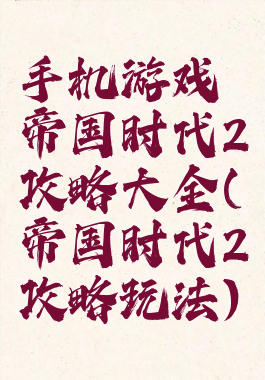 手机游戏
帝国时代2
攻略大全(
帝国时代2
攻略玩法)